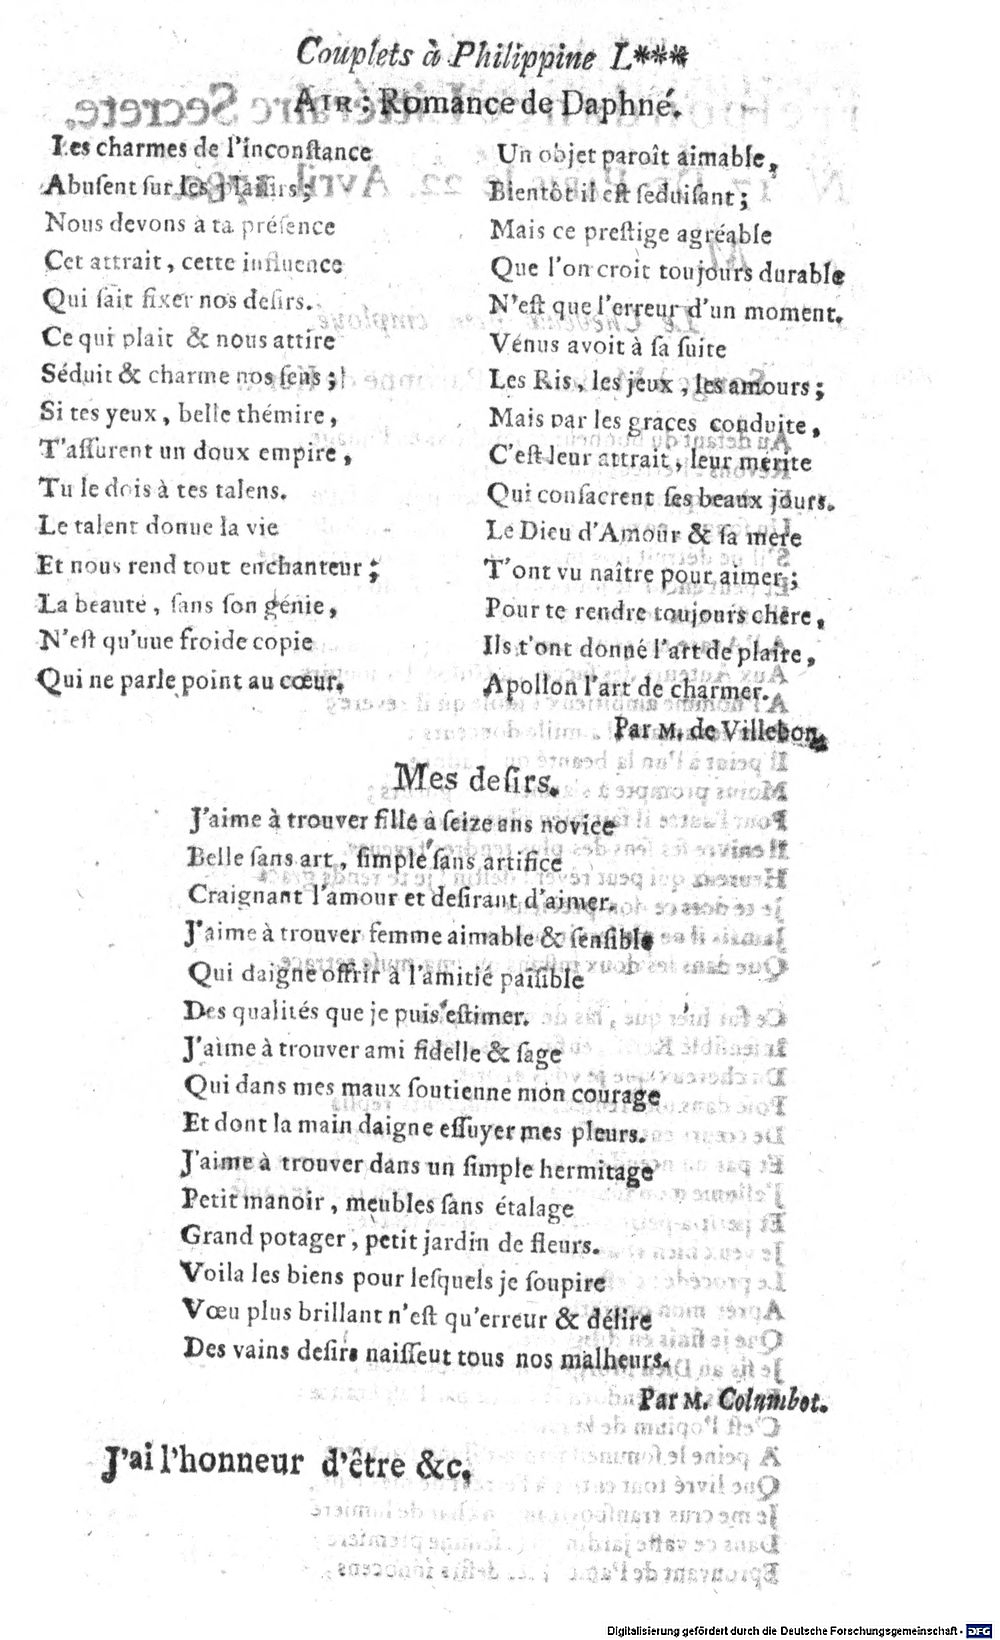 Couplets à Philippine L***
AIR : Romance de Daphné.
Les charmes de l'inconſtance
Abuſent ſur les plaiſirs ;
Nous devons à ta préſence
Cet attrait, cette influence
Qui ſait fixer nos deſirs.
Ce qui plait & nous attire
Séduit & charme nos ſens ;
Si tes yeux, belle thémire,
T'aſſurent un doux empire,
Tu le dois à tes talens.
Le talent donne la vie
Et nous rend tout enchanteur ;
La beauté, ſans ſon génie,
N'eſt qu'uue froide copie
Qui ne parle point au cœur.
Un objet paroît aimable,
Bientôt il eſt ſeduiſant ;
Mais ce preſtige agréable
Que l'on croit toujours durable
N'eſt que l'erreur d'un moment.
Vénus avoit à ſa ſuite
Les Ris, les jeux, les amours ;
Mais par les graces conduite,
C'eſt leur attrait, leur mérite
Qui conſacrent ſes beaux jours.
Le Dieu d'Amour & ſa mere
T'ont vu naître pour aimer ;
Pour te rendre toujours chère,
Ils t'ont donné l'art de plaire,
Apollon l'art de charmer.
Par M. de Villebon,
Mes deſirs.
J'aime à trouver fille à ſeize ans novice
Belle ſans art, ſimple ſans artifice
Craignant l'amour et deſirant d'aimer.
J'aime à trouver femme aimable & ſenſible
Qui daigne offrir à l'amitié paiſible
Des qualités que je puis eſtimer.
J'aime à trouver ami fidelle & ſage
Qui dans mes maux ſoutienne mon courage
Et dont la main daigne eſſuyer mes pleurs.
J'aime à trouver dans un ſimple hermitage
Petit manoir, meubles ſans étalage
Grand potager, petit jardin de fleurs.
Voila les biens pour leſquels je ſoupire
Vœu plus brillant n'eſt qu'erreur & délire
Des vains deſirs naiſſeut tous nos malheurs.
Par M. Columbot.
J'ai l'honneur d'être &c.
Digitalisierung gefördert durch die Deutsche Forschungsgemeinschaft - DFG